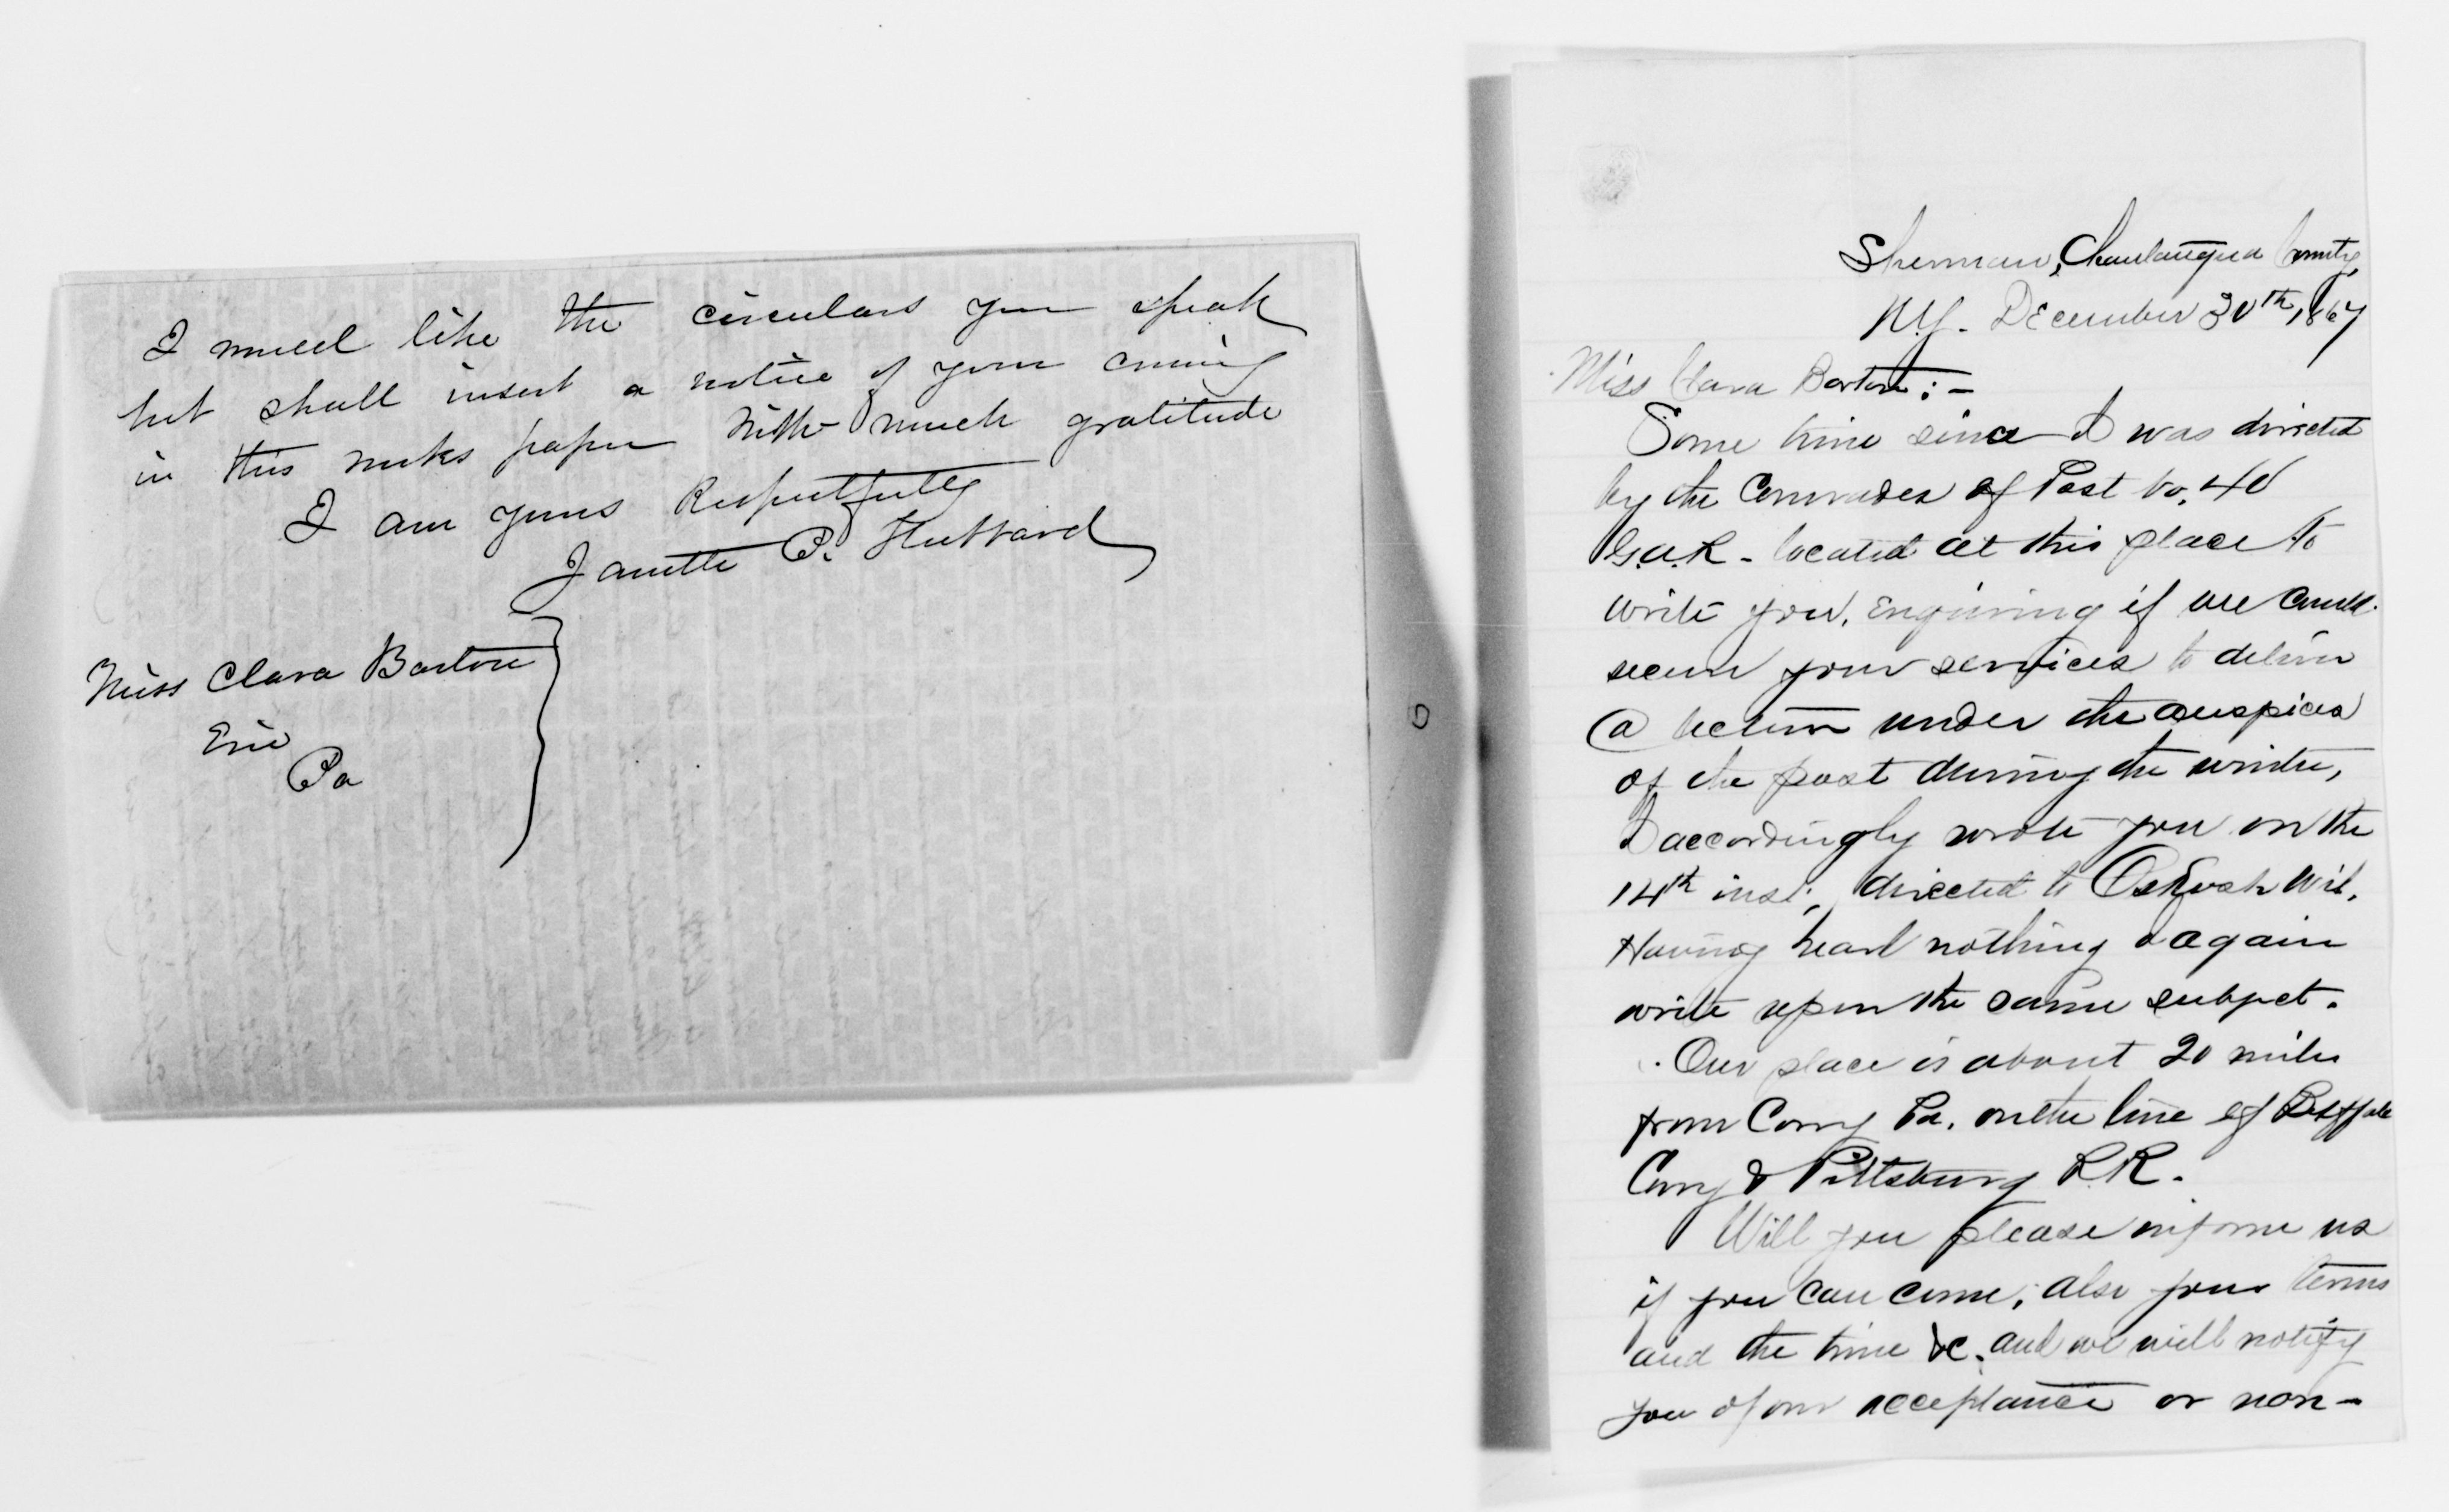 I would like the circulars you speak
but shall insert a notice of your coming
in this weeks paper With much gratitude
I am yours Respectfully
Janette P. Hubbard
Miss Clara Barton
Erie
Pa
Sherman, Chautauqua County,
N.Y. December 30th, 1867
Miss Clara Barton:-
Some time since I was directed
by the Comrades of Post No. 40
G.A.R. located at this place to
write you, enquiring if we could
secure your services to deliver
a lecture under the auspices
of the post during the winter,
I accordingly wrote you on the
14th inst, directed to Oskosh Wis.
Having heard nothing I again
write upon the same subject.
Our place is about 20 miles
from Corry Pa. on the line of Buffalo
Corry & Pittsburg R.R.
Will you please inform us
if you can come; also your terms
and the time &c. and we will notify
you of our acceptance or non-